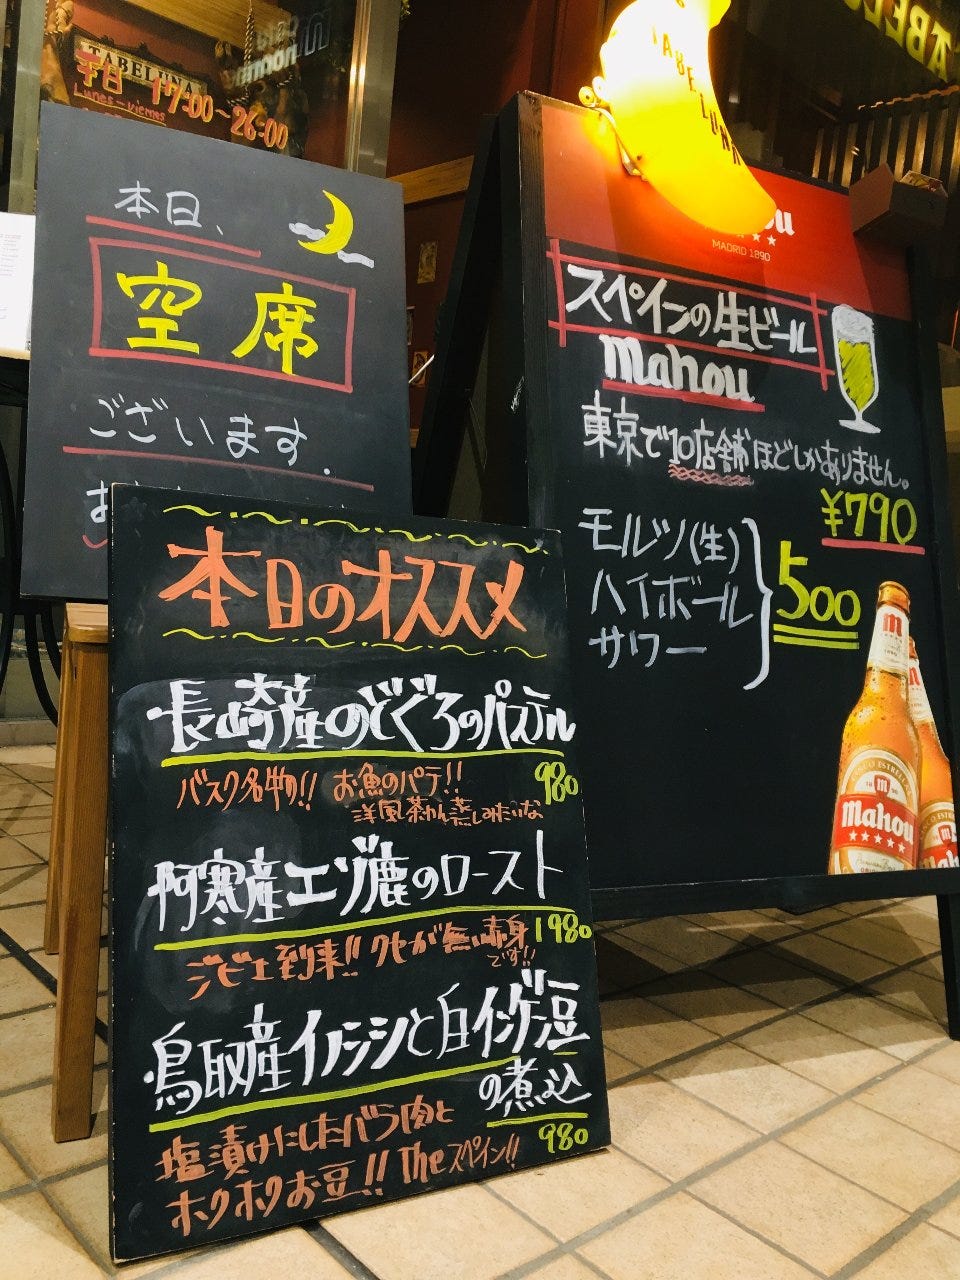 TABELUNA
平日 17:00~26:00
Lunes-Viernes
TABELUNA
本日、
空席
ございます.
MADRID 1890
スペインの生ビール
mahou
東京で10店舗ほどしかありません。
¥790
モルツ(生)
ハイボール
サワー
500
本日のオススメ
・長崎産のどぐろのパステル
バスク名物!! お魚のパテ!! 980
洋風茶わん蒸しみたいな
・阿寒産エゾ鹿のロースト
ジビエ到来!! クセが無い赤身 1980
です!!
・鳥取産イノシシと白インゲン豆
の煮込
塩漬けにしたバラ肉と 980
ホクホクお豆!! The スペイン!!
mahou